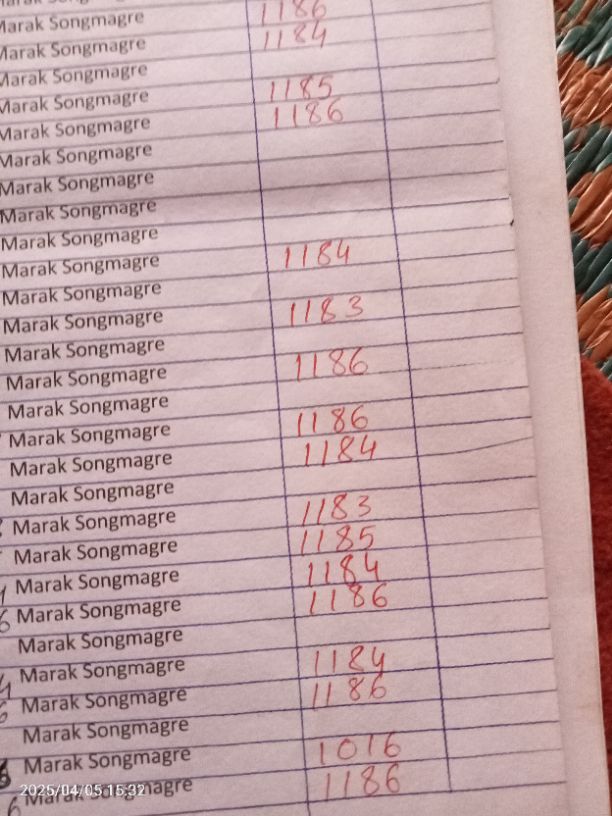 Marak Songmagre 1186
Marak Songmagre 1184
Marak Songmagre
Marak Songmagre 1185
Marak Songmagre 1186
Marak Songmagre
Marak Songmagre
Marak Songmagre
Marak Songmagre
Marak Songmagre 1184
Marak Songmagre
Marak Songmagre 1183
Marak Songmagre
Marak Songmagre 1186
Marak Songmagre
Marak Songmagre 1186
Marak Songmagre 1184
Marak Songmagre
Marak Songmagre 1183
Marak Songmagre 1185
Marak Songmagre 1184
6 Marak Songmagre 1186
Marak Songmagre
4 Marak Songmagre 1184
6 Marak Songmagre 1186
Marak Songmagre
Marak Songmagre 1016
6 Marak Songmagre 1186
2025/04/05 15:32